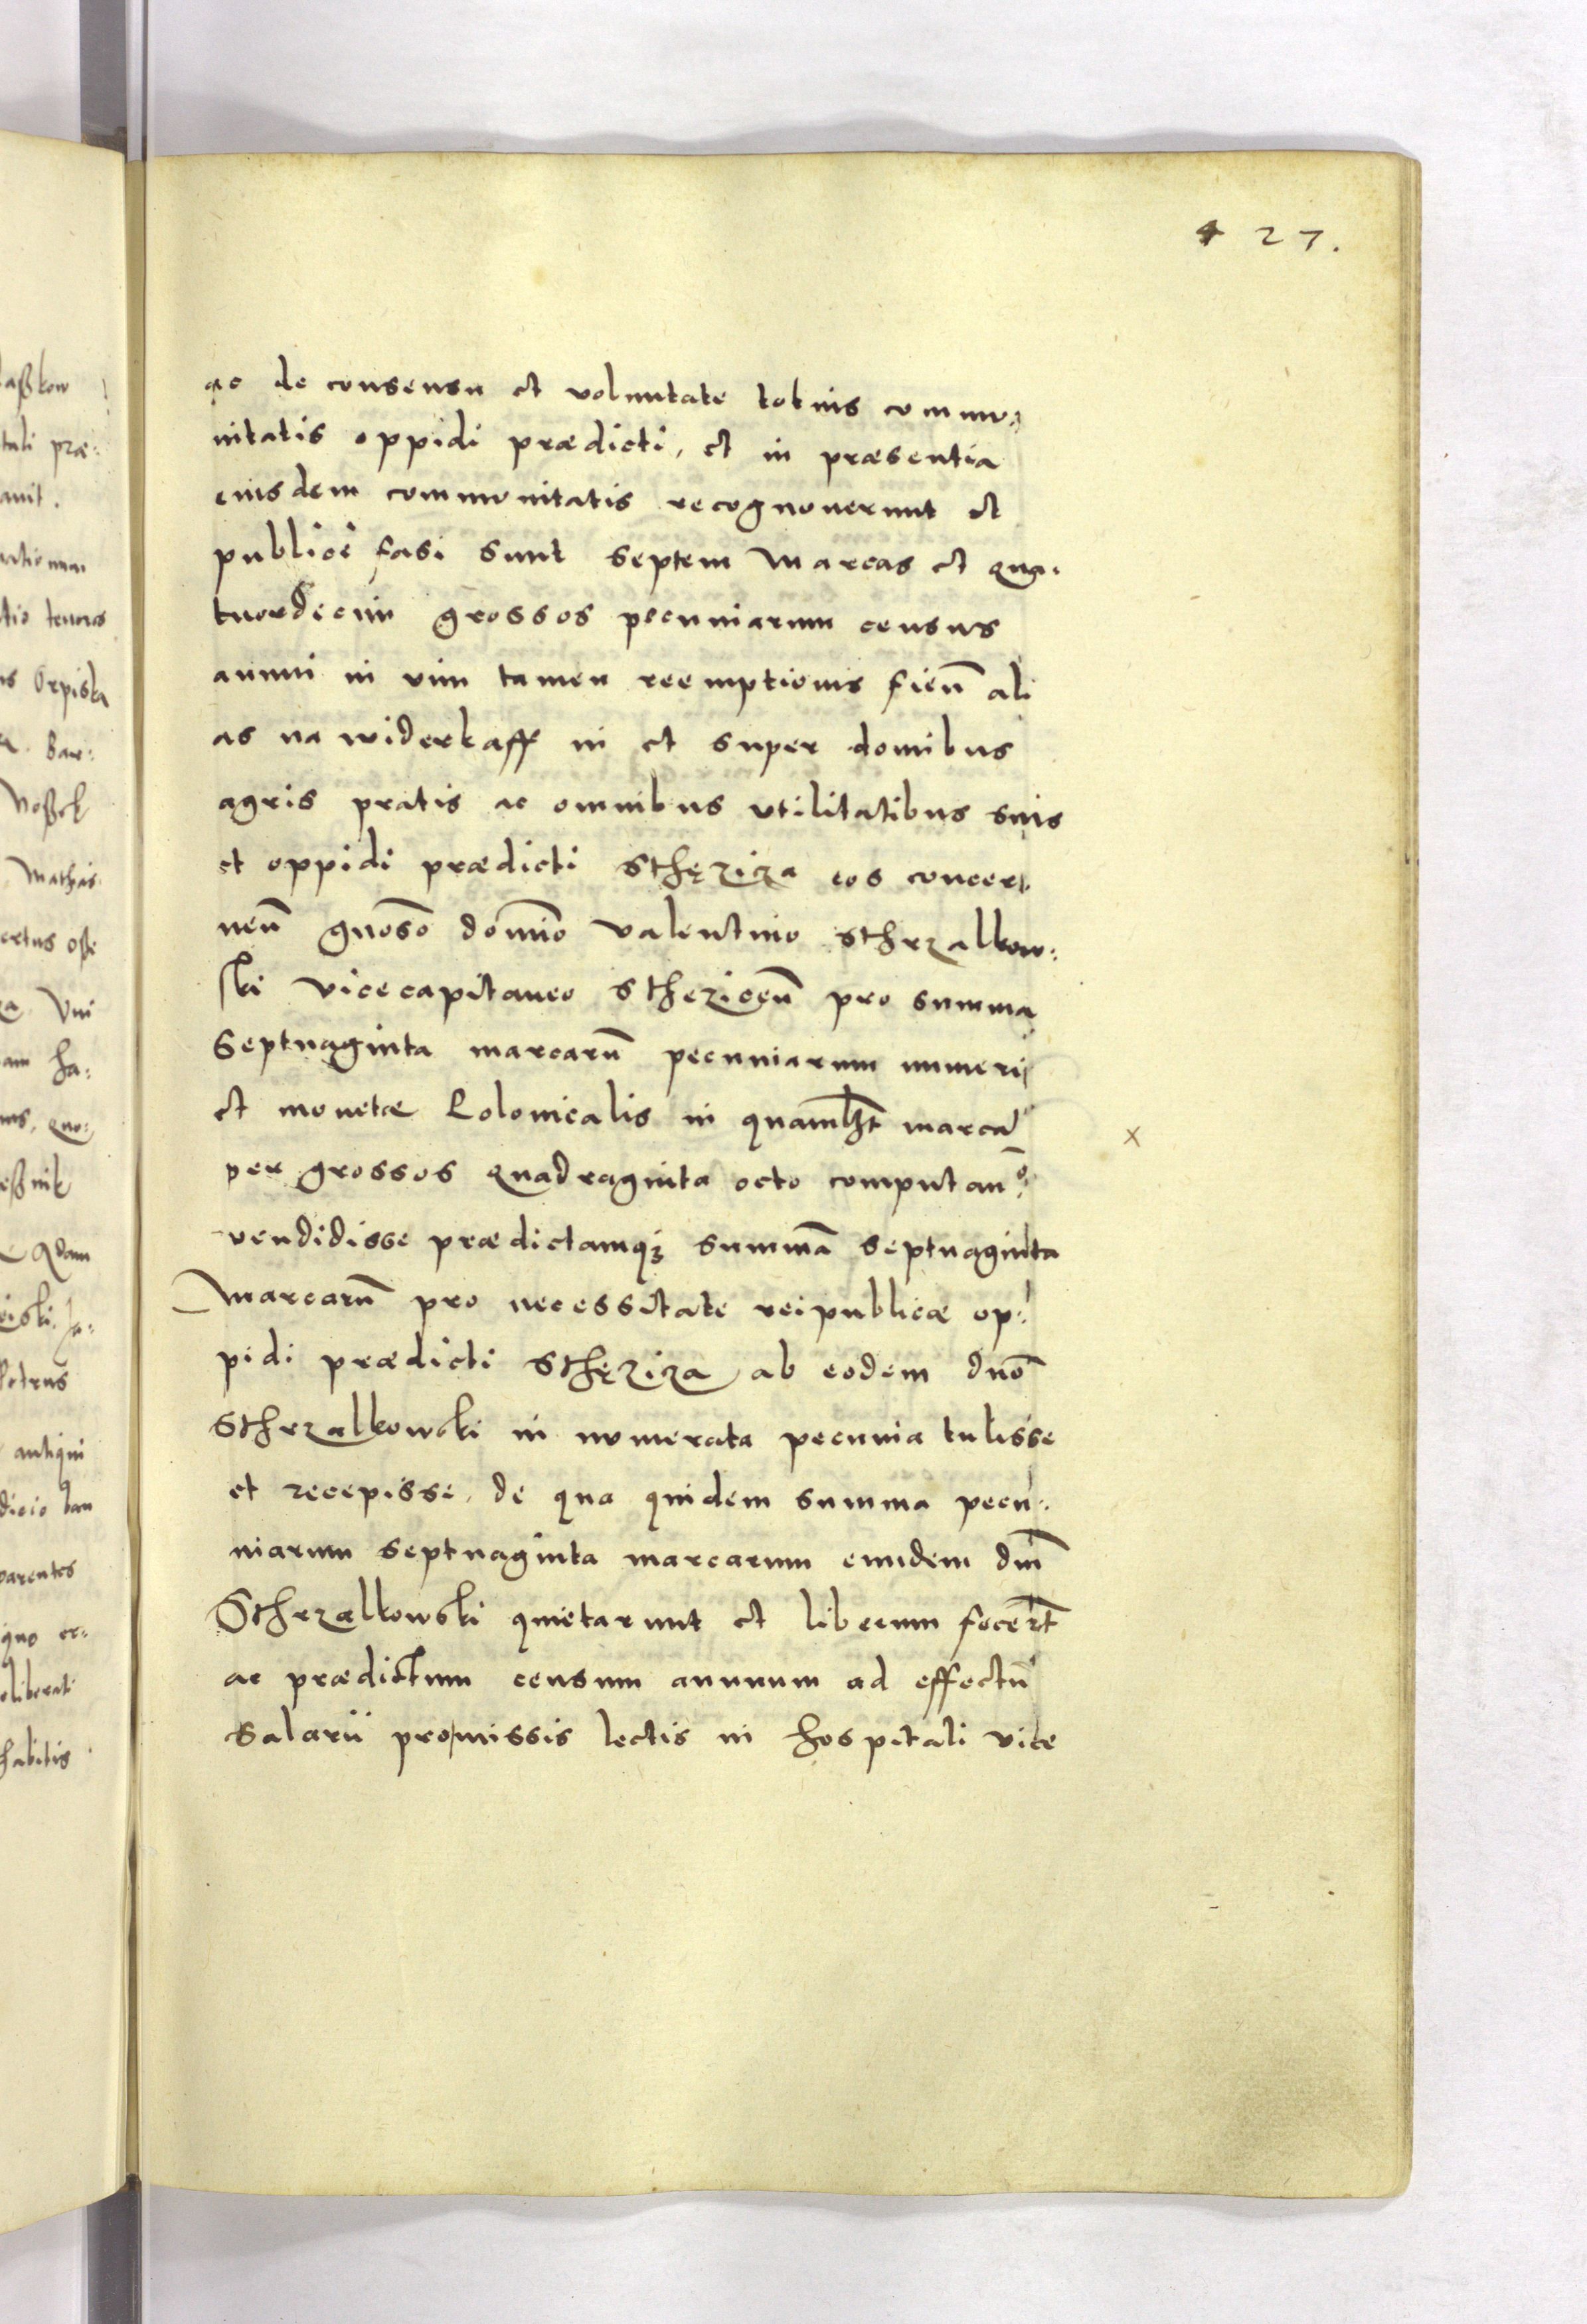 4 27.
ac de consensu et voluntate totius commu:
nitatis oppidi prædicti, et in præsentia
eiusdem communitatis recognoverunt et
publicè fasi sunt septem marcas et qua:
tuordecim grossos pecuniarum census
annui in vim tamen reemptionis fień ali
as na widerkaff in et super domibus
agris pratis ac omnibus utilitatibus suis
et oppidi prædicti Sthęziza eos concer:
neñ gnoso domino Valentino Sthrzalkow:
ski vicecapitaneo Stheziceñ pro summa
septuaginta marcarū pecuniarum numeri
et monetæ Polonicalis in quamlt marcā
per grossos quadraginta octo computanō
vendidisse prædictamq3 summā septuaginta
marcarū pro necessitate reipublicæ op:
pidi prædicti Sthęziza ab eodem dnō
Sthrzalkowski in numerata pecunia tulisse
et recepisse, de qua quidem summa pecu:
niarum septuaginta marcarum eundem dm̄
Sthrzalkowski quietarunt et liberum fecerūt
ac prædictum censum annuum ad effectū
salarii promissis lectis in hospitali vice
x
aßkow
tali præ:
avit.
tio tenoris
is Orpiska
Bar:
Noßek
Mathias
ertus oße
Vni
am ha:
quo:
eßnik
Adam
Petrus
antiqui
dicio ban
parentes
quo oc:
eliberati
habitis